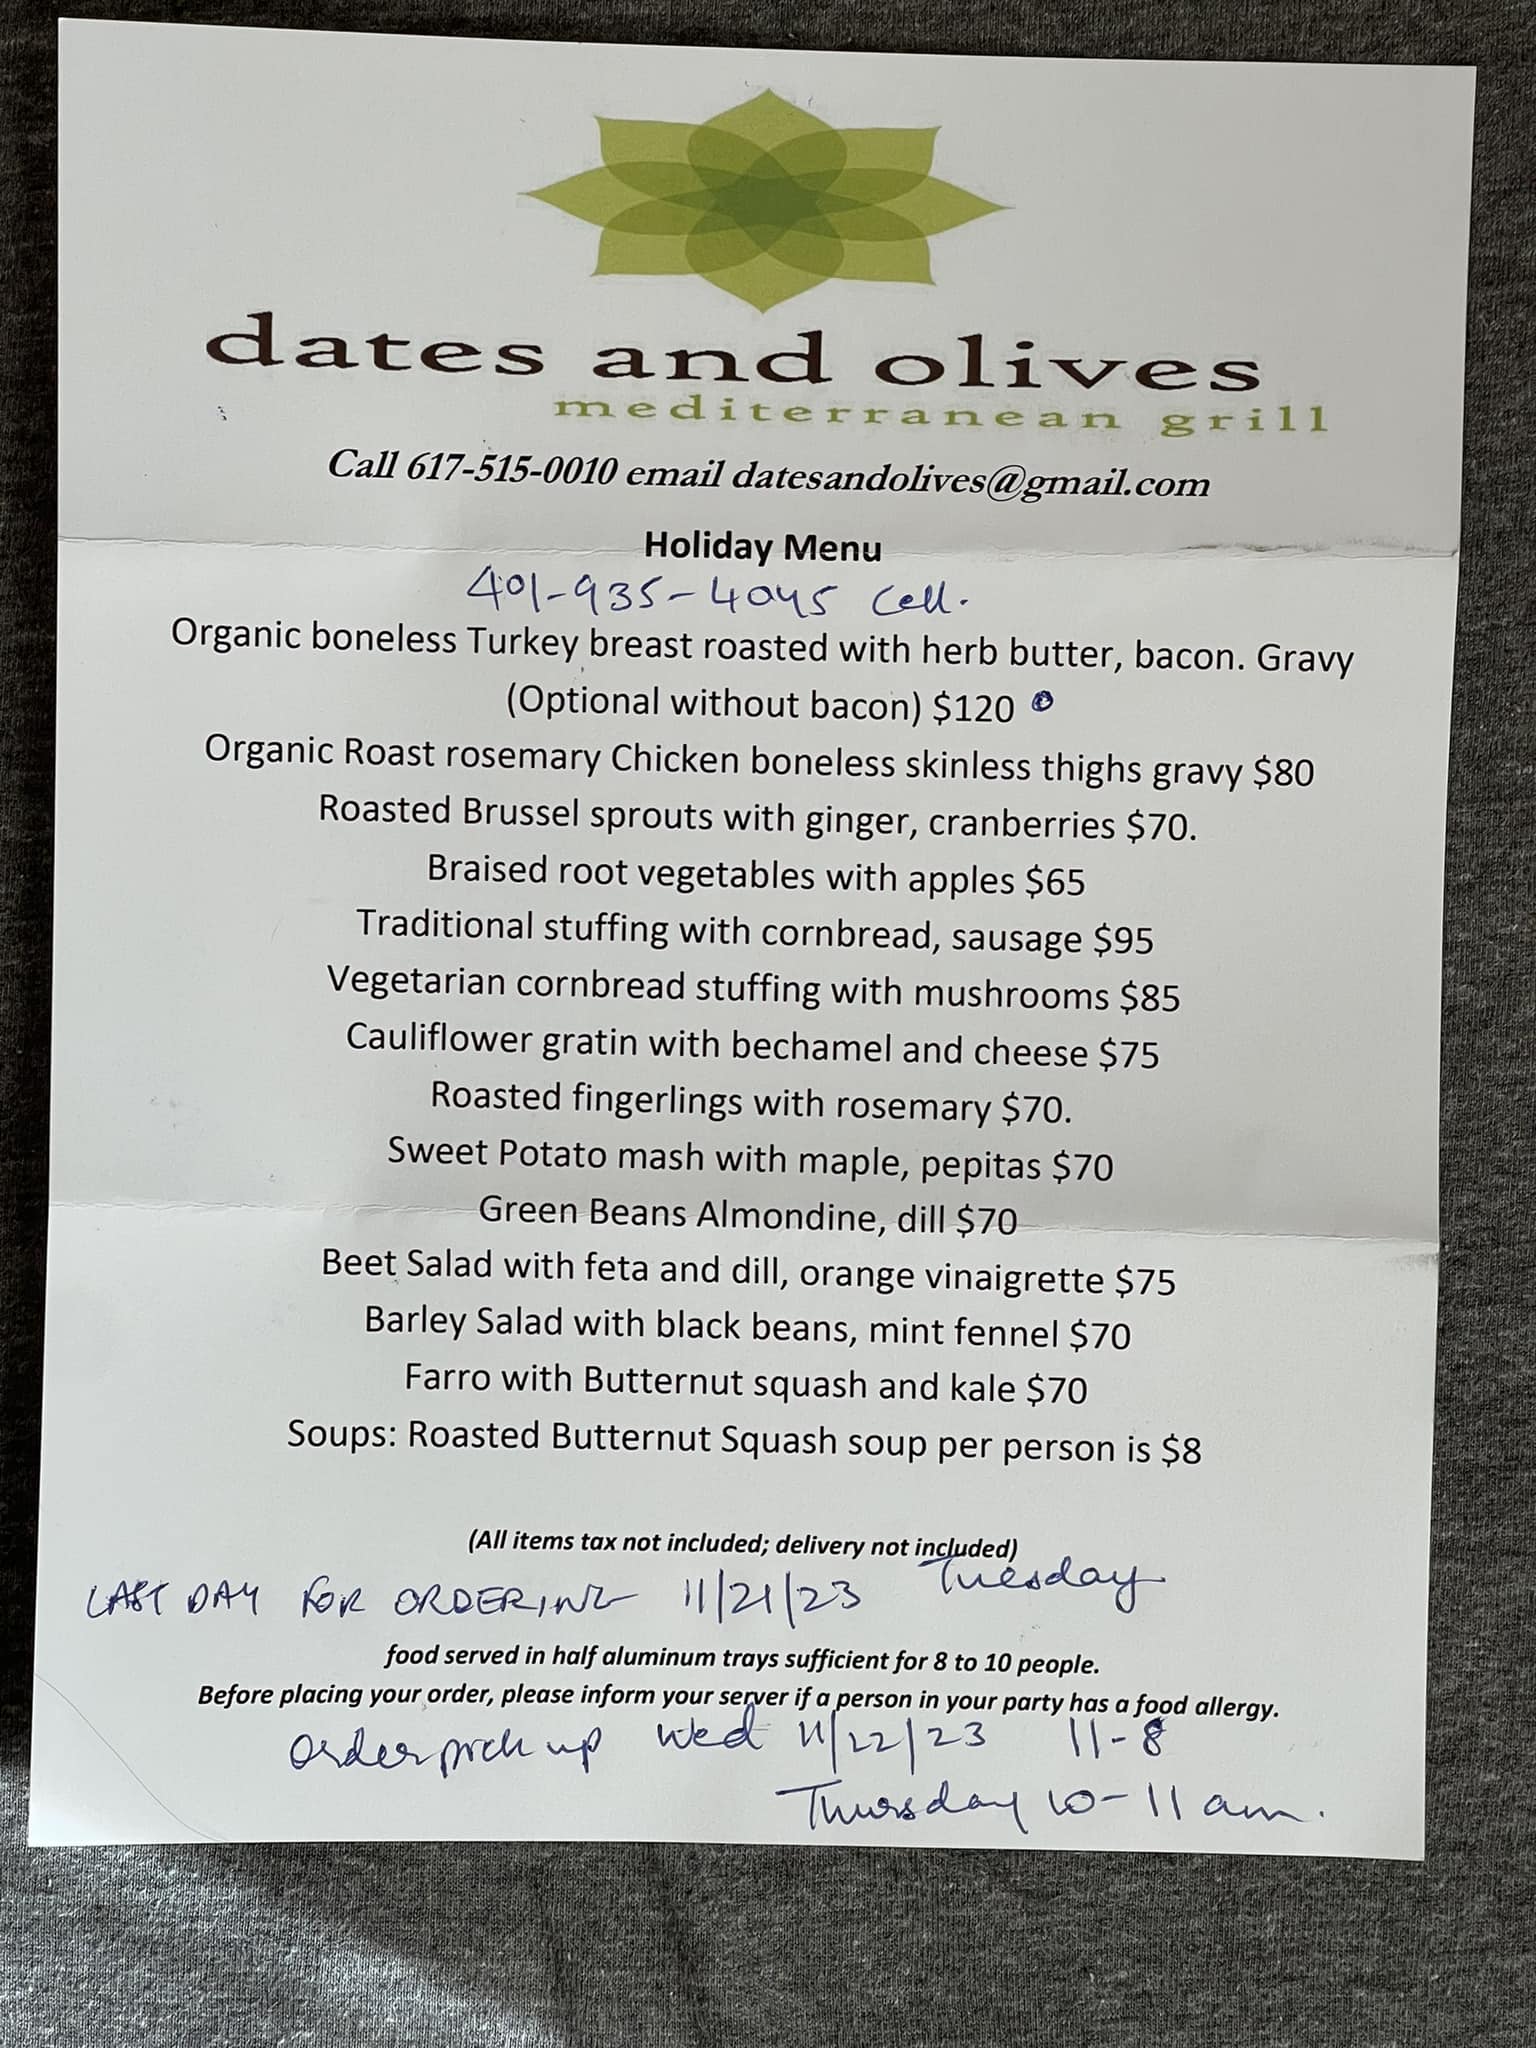 dates and olives
mediterranean grill
Call 617-515-0010 email datesandolives@gmail.com
Holiday Menu
401-935-4045 cell.
Organic boneless Turkey breast roasted with herb butter, bacon. Gravy
(Optional without bacon) $120
Organic Roast rosemary Chicken boneless skinless thighs gravy $80
Roasted Brussel sprouts with ginger, cranberries $70.
Braised root vegetables with apples $65
Traditional stuffing with cornbread, sausage $95
Vegetarian cornbread stuffing with mushrooms $85
Cauliflower gratin with bechamel and cheese $75
Roasted fingerlings with rosemary $70.
Sweet Potato mash with maple, pepitas $70
Green Beans Almondine, dill $70
Beet Salad with feta and dill, orange vinaigrette $75
Barley Salad with black beans, mint fennel $70
Farro with Butternut squash and kale $70
Soups: Roasted Butternut Squash soup per person is $8
(All items tax not included; delivery not included)
LAST DAY FOR ORDERING 11/21/23 Tuesday
food served in half aluminum trays sufficient for 8 to 10 people.
Before placing your order, please inform your server if a person in your party has a food allergy.
order pick up Wed 11/22/23 11-8
Thursday 10-11 am.